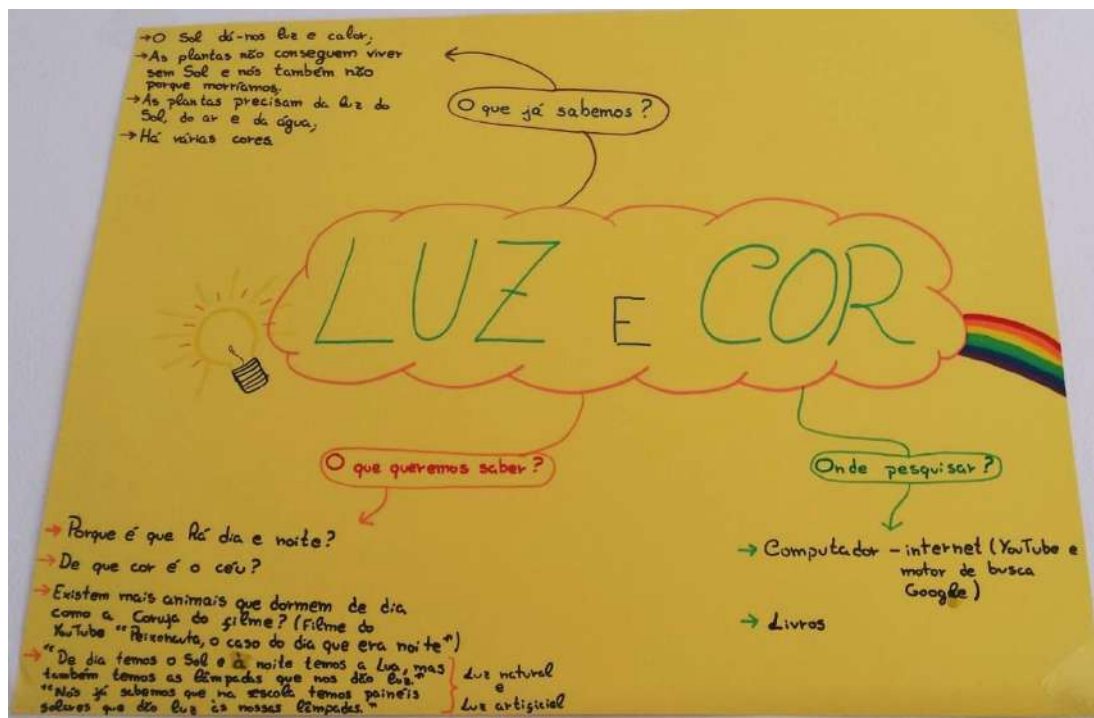 → O Sol dá-nos luz e calor;
→ As plantas não conseguem viver
sem Sol e nós também não
porque morríamos.
→ As plantas precisam da luz do
Sol, do ar e da água;
→ Há várias cores.
O que já sabemos?
LUZ E COR
O que queremos saber?
→ Porque é que há dia e noite?
→ De que cor é o céu?
→ Existem mais animais que dormem de dia
como a Coruja do filme? (Filme do
YouTube "Peixonauta, o caso do dia que era noite")
→ "De dia temos o Sol e à noite temos a Lua, mas
também temos as lâmpadas que nos dão luz."
"Nós já sabemos que na escola temos painéis
solares que dão luz às nossas lâmpadas."
Luz natural
e
Luz artificial
Onde pesquisar?
→ Computador - internet (YouTube e
motor de busca
Google)
→ Livros